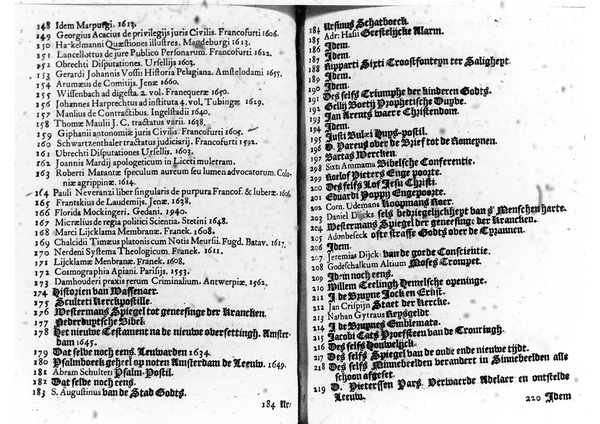 148 Idem Marpurgi. 1613.
149 Georgius Acacius de privilegijs juris Civilis. Francofurti 1606.
150 Hackelmanni Quæstiones illustres. Magdeburgi 1613.
151 Lancellottus de jure Publico Personarum. Francofurti 1612.
152 Obrechti Disputationes. Ursellis 1603.
153 Gerardi Johannis Vossii Historia Pelagiana. Amstelodami 1655.
154 Arumæus de Comitijs. Jenæ 1660.
155 Wissenbach ad digesta. 2. vol. Franequeræ 1650.
156 Johannes Harprechtus ad instituta 4. vol. Tubingæ 1619.
157 Manlius de Contractibus. Ingelstadii 1640.
158 Thomæ Maulii J. C. tractatus varii. 1638.
159 Giphanii antonomiæ juris Civilis. Francofurti 1605.
160 Schwartzenthaler tractatus judiciarij. Francofurti 1592.
161 Ubrechti Disputationes Ursellis. 1603.
162 Joannis Mardij apologeticum in Liceti muletram.
163 Roberti Marantæ speculum aureum seu lumen advocatorum. Coloniæ
agrippinæ. 1614.
164 Pauli Neveranzi liber singularis de purpura Francof. & luberæ
165 Frantskius de Laudemijs. Jenæ. 1638.
166 Florida Mockingeri. Gedani. 1940.
167 Micrælius de regia politici Scientia. Stetini 1648.
168 Marci Lijcklama Membranæ. Franek. 1608.
169 Chalcidii Timæus platonis cum Notis Meursii. Fugd. Batav. 1617.
170 Nerdeni Systema Theologicum. Franek. 1611.
171 Lijcklamæ Menbranæ. Franek. 1608.
172 Cosmographia Apiani. Parisijs. 1553.
173 Damhouderi praxis rerum Criminalium. Antwerpiæ. 1562.
174 Historien van Wassenaer.
175 Sculteti Kerckpostille.
176 Westermans Spiegel tot geneesinge der Krancken.
177 Nederduytsche Bibel.
178 Het nieuwe Testament na de nieuwe oversettingh. Amsterdam
1645.
179 Dat selve noch eens. Leuwarden 1634.
180 Psalmboeck geheel op noten Amsterdam de Leeuw. 1649.
181 Abram Schulteri Psalm-Postil.
182 Dat selve noch eens.
183 S. Augustinus van de Stad Godts.
184 Ur
184 Ursinus Schatboeck.
185 Adr: Hasii Geestelijcke Alarm.
186 Idem.
187 Idem.
188 Ripparti Sixti Croostfonteyn ter Saligheyt.
189 Idem.
190 Idem.
191 Des selfs Triumphe der kinderen Godts.
192 Gellij Boetij Prophetische Duybe.
193 Jan Arents waere Christendom.
194 Idem.
195 Justi Bulæi Huys-postil.
196 D. Pareus over de Brief tot de Romeynen.
197 Bartas Wercken.
198 Sixti Ammama Bibelsche Conferentie.
199 Roelof Pieters Enge poorte.
200 Des selfs Lof Jesu Christi.
201 Eduardi Poppij Engepoorte.
202 Corn. Udemans Koopmans Naer.
203 Daniel Dijcks sels bedriegelijckheyt van s' Menschen harte.
204 Westermans Spiegel der geneesinge der Krancken.
205 Adonibeseck ofte straffe Godts over de Tyrannen.
206 Idem.
207 Jeremias Dijck. van de goede Conscientie.
208 Godeschalkum Altium Moses Trompet.
209 Idem noch eens.
210 Willem Teelingh Hemelsche openinge.
211 J. de Bruyne Jock en Ernst.
212 Jan Crispijn Staet der Kercke.
213 Nathan Gytraux Reysgeldt
214 J. de Bruynes Emblemata.
215 Jacobi Cats Proefsteen van de Trouringh.
216 Des selfs Houwelijck.
217 Des selfs Spiegel van de oude ende nieuwe tijdt.
218 Des selfs Minnebeelden verandert in Sinnebeelden alle
schoon afgeset.
219 D. Pieterssen Pars. Verwaerde Adelaer en ontstelde
Leeuw.
220 Idem